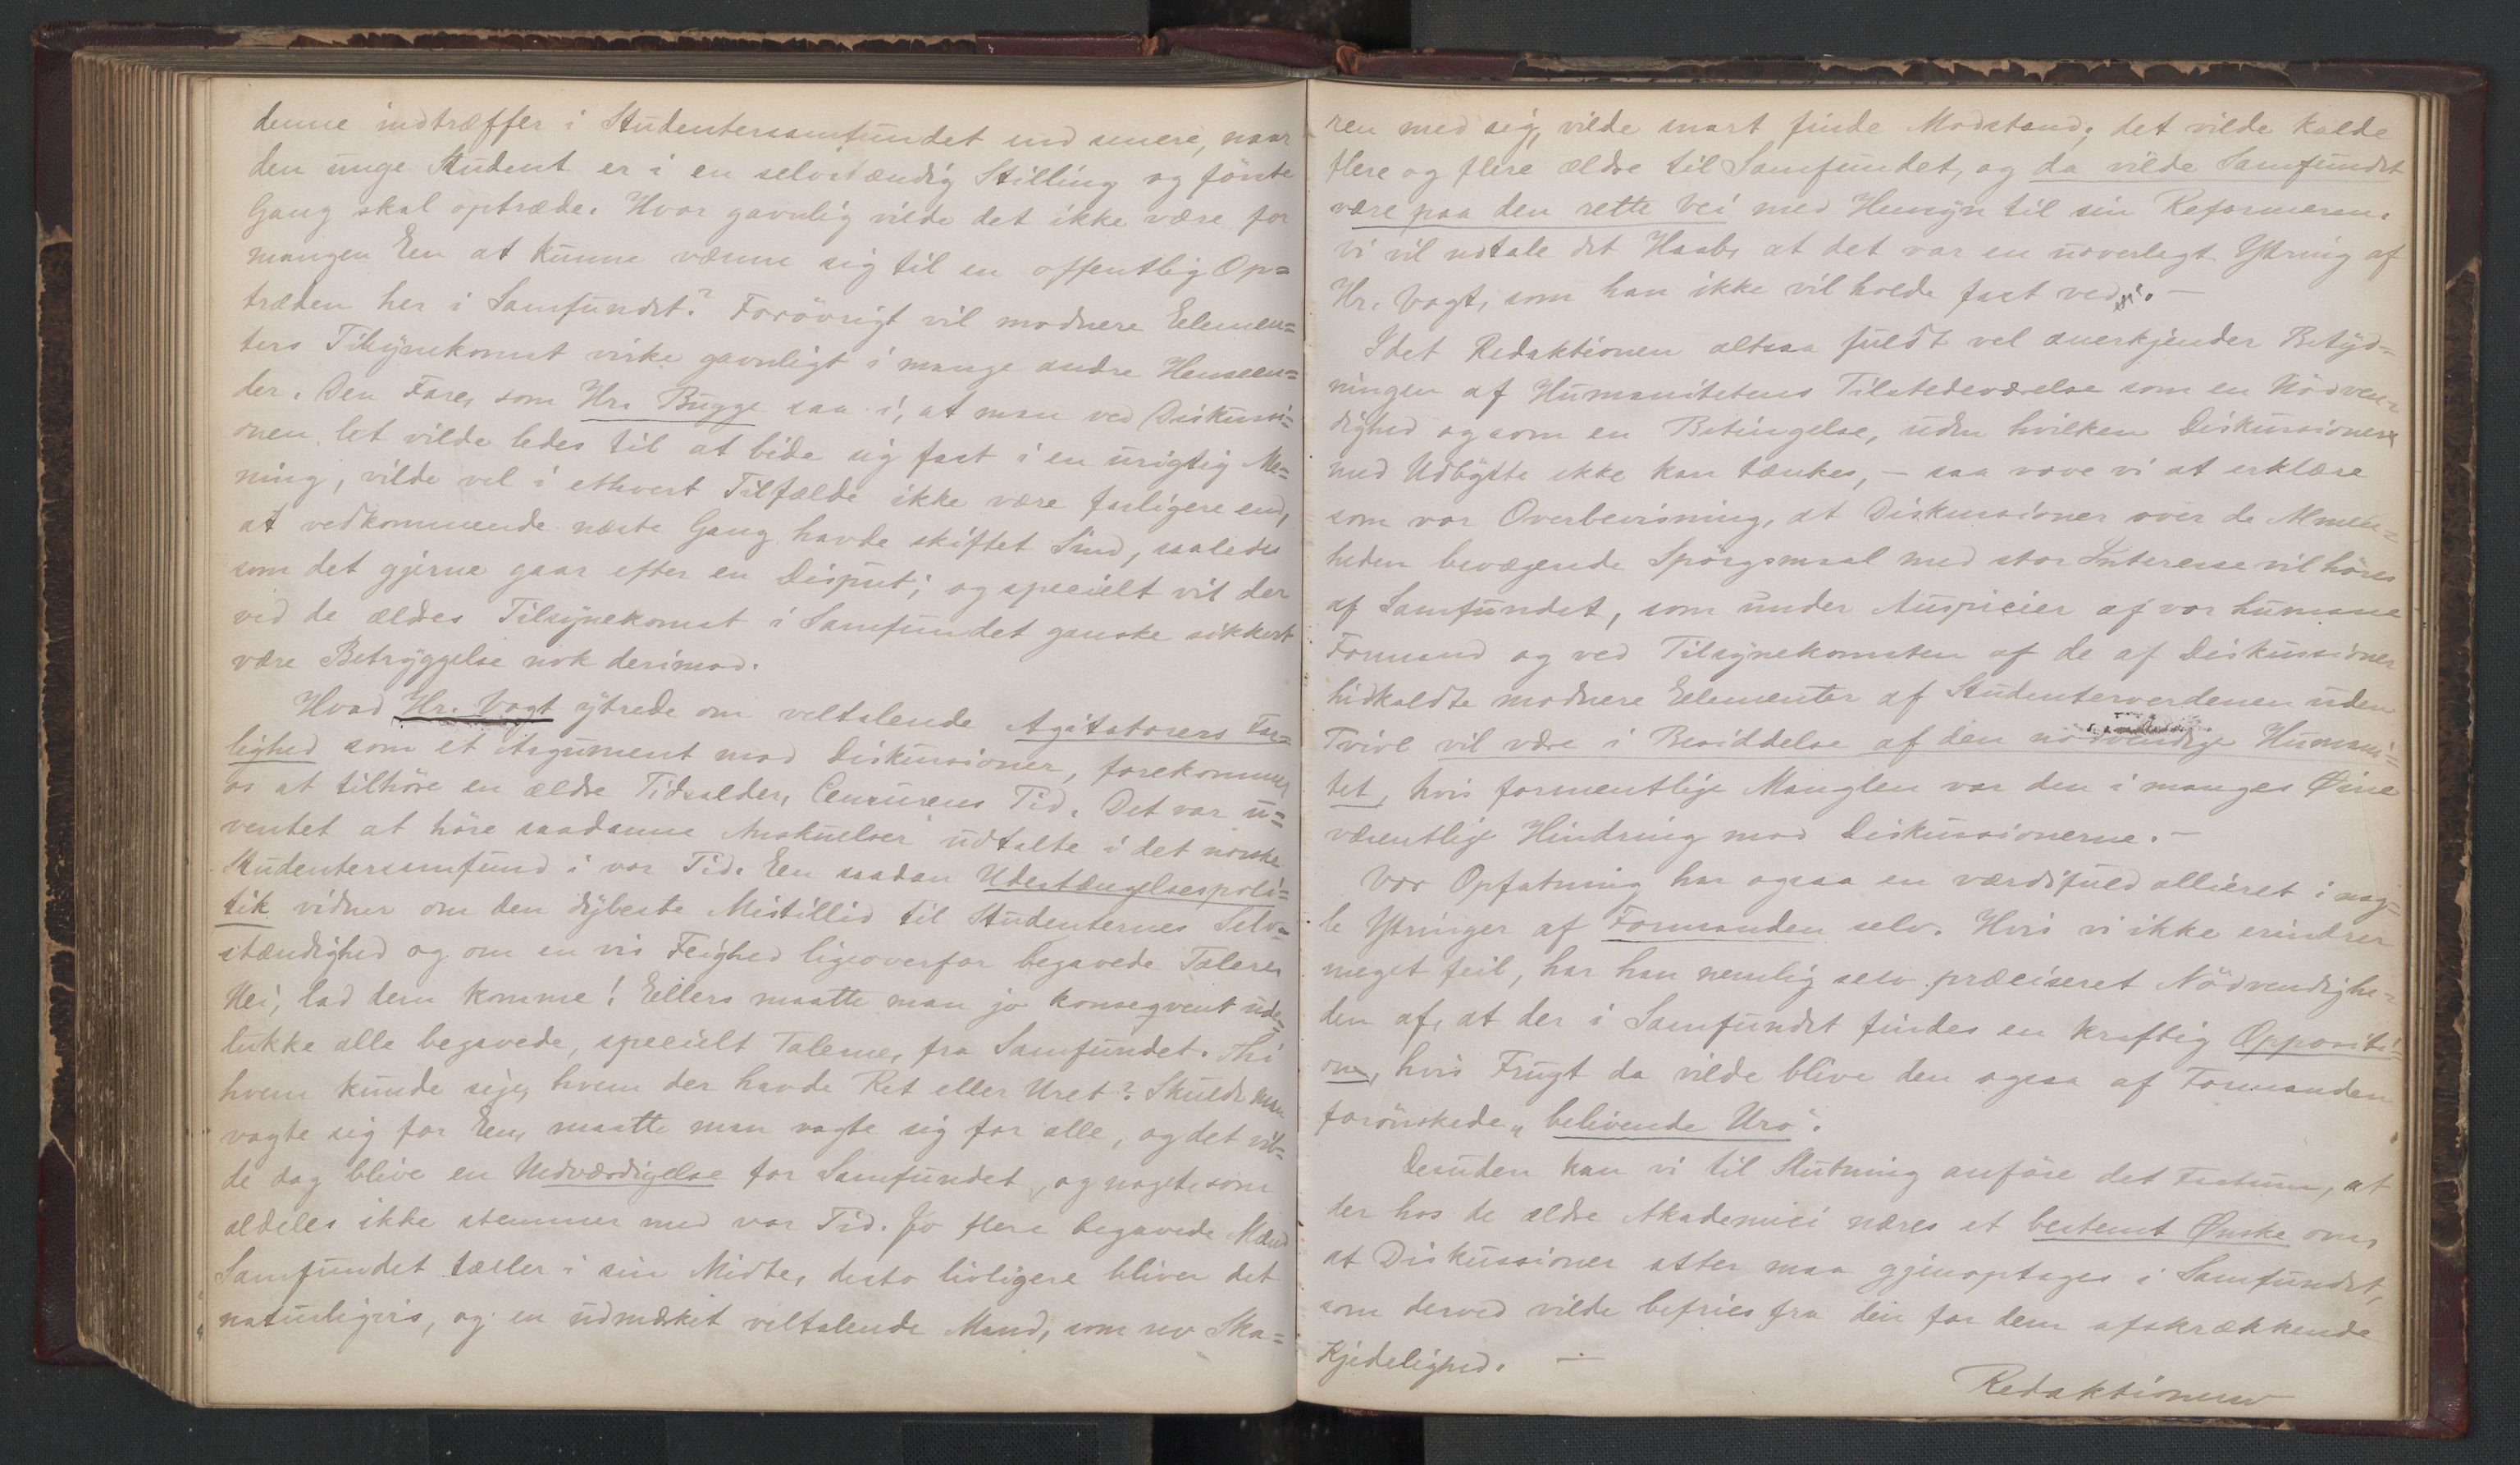 denne indtræffer i Studentersamfundet end senere, naar
den unge Student er i en selvstændig Stilling og förste
Gang skal optræde. Hvor gavnlig vilde det ikke være for
mangen Een at kunne vænne sig til en offentlig Op=
træden her i Samfundet? Forövrigt vil modnere Elemen=
ters Tilsynekomst virke gavnligt i mange andre Henseen=
der. Den Fare, som Hr. Bugge saa i, at man ved Diskussi=
onen let vilde ledes til at bide sig fast i en urigtig Me=
ning, vilde vel i ethvert Tilfælde ikke være farligere end,
at vedkommende næste Gang havde skiftet Sind, saaledes
som det gjerne gaar efter en Disput; og specielt vil der
ved de ældres Tilsynekomst i Samfundet ganske sikkert
være Betryggelse nok derimod.
Hvad Hr. Vogt ytrede om veltalende Agitatorers Far=
lighed som et Argument mod Diskussioner, forekommer
os at tilhöre en ældre Tidsalder, Censurens Tid. Det var u=
ventet at höre saadanne Anskuelser udtalte i det norske
Studentersamfund i vor Tid. Een saadan Udestængelsespoli=
tik vidner om den dybeste Mistillid til Studenternes Selv=
stændighed og om en vis Feighed ligeoverfor begavede Talere.
Nei, lad dem komme! Eellers maatte man jo konseqvent ude=
lukke alle begavede, specielt Talerne, fra Samfundet. Thi
hvem kunde sige, hvem der havde Ret eller Uret? Skulde man
vogte sig for Een, maatte man vogte sig for alle, og det vil=
de dog blive en Nedværdigelse for Samfundet, og noget, som
aldeles ikke stemmer med vor Tid. Jo flere begavede Mænd
Samfundet tæller i sin Midte, desto livligere bliver det
naturligvis, og en udmærket veltalende Mand, som rev Ska=
ren med sig, vilde snart finde Modstand; det vilde kalde
flere og flere ældre til Samfundet, og da vilde Samfundet
være paa den rette Vei med Hensyn til sin Reformeren.
Vi vil udtale det Haab, at det var en uoverlagt Ytring af
Hr. Vogt, som han ikke vil holde fast ved. —
Idet Redaktionen altsaa fuldt vel anerkjender Betyd=
ningen af Humanitetens Tilstedeværelse som en Nödven=
dighed og som en Betingelse, uden hvilken Diskussioner
med Udbytte ikke kan tænkes, — saa vove vi at erklære
som vor Overbevisning, at Diskussioner over de Almen=
heden bevægende Spörgsmaal med stor Interesse vil höres
af Samfundet, som under Auspicier af vor humane
Formand og ved Tilsynekomsten af de af Diskussioner
hidkaldte modnere Eelementer af Studenterverdenen uden
Tvivl vil være i Besiddelse af den nödvendige Humani=
tet, hvis formentlige Manglen var den i manges Øine
væsentlige Hindring mod Diskussionerne. —
Vor Opfatning har ogsaa en værdifuld allieret i nog=
le Ytringer af Formanden selv. Hvis vi ikke erindrer
meget feil, har han nemlig selv præciseret Nödvendighe=
den af, at der i Samfundet findes en kraftig Oppositi=
on, hvis Frugt da vilde blive den ogsaa af Formanden
forönskede „belivende Uro".
Desuden kan vi til Slutning anföre det Factum, at
der hos de ældre Akademici næres et bestemt Ønske om,
at Diskussioner atter maa gjenoptages i Samfundet,
som derved vilde befries fra den for dem afskrækkende
Kjedelighed. —
Redaktionen